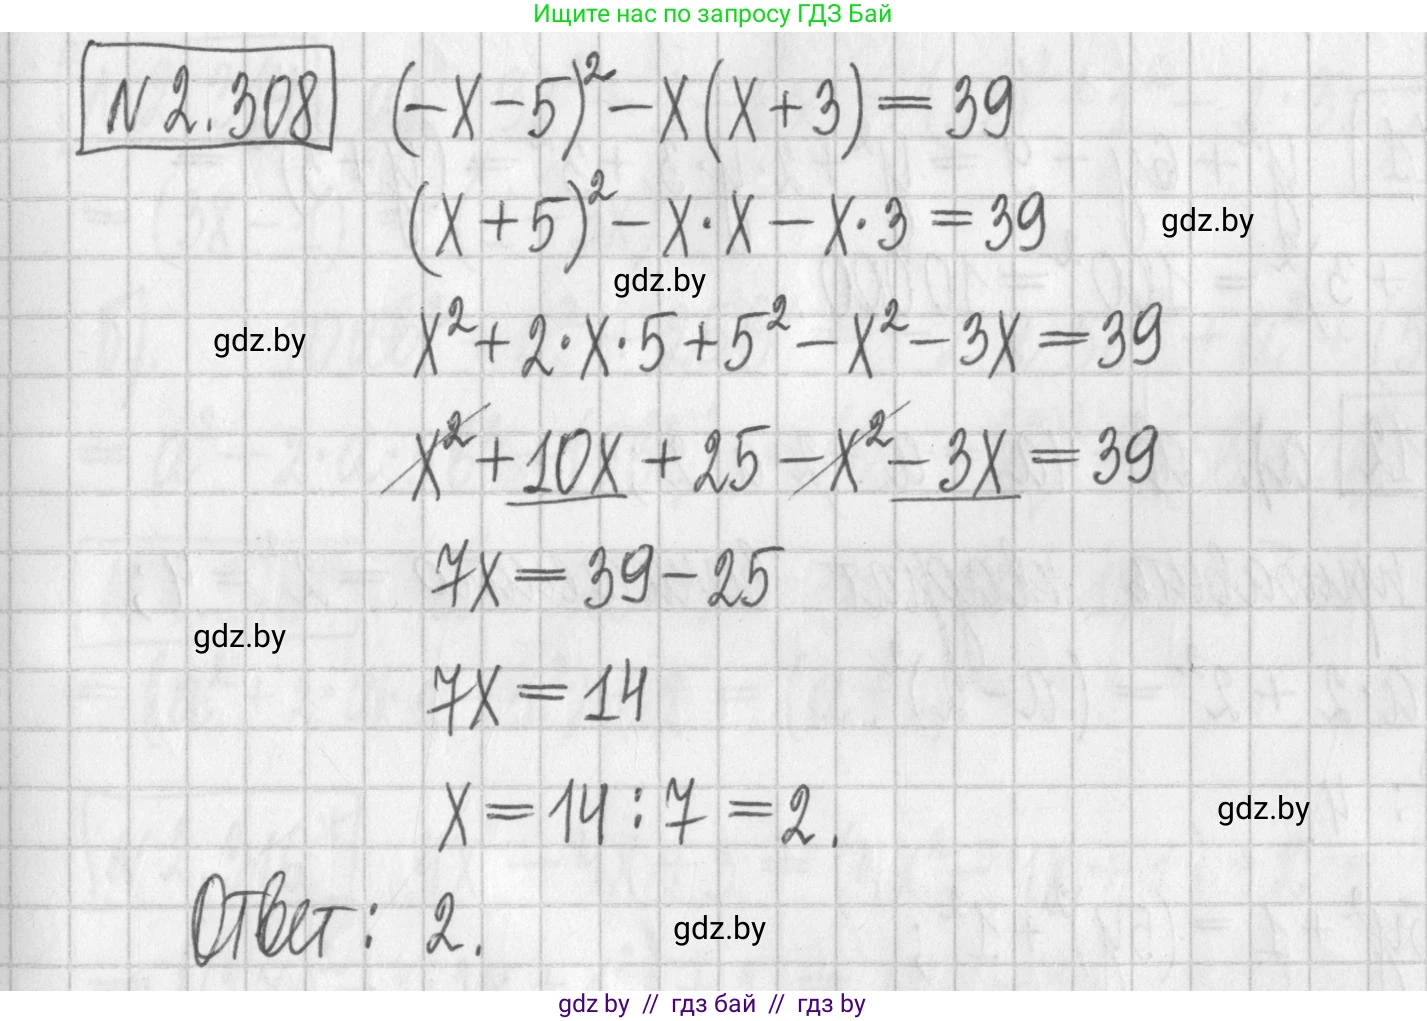 Ищите нас по запросу ГДЗ Бай
N 2.308 (-x-5)² - x(x+3) = 39
(x+5)² - x·x - x·3 = 39
gdz.by
gdz.by
gdz.by
x² + 2·x·5 + 5² - x² - 3x = 39
x² + 10x + 25 - x² - 3x = 39
7x = 39 - 25
gdz.by
7x = 14
x = 14 : 7 = 2.
gdz.by
Ответ: 2.
gdz.by
gdz by // гдз бай // гдз by